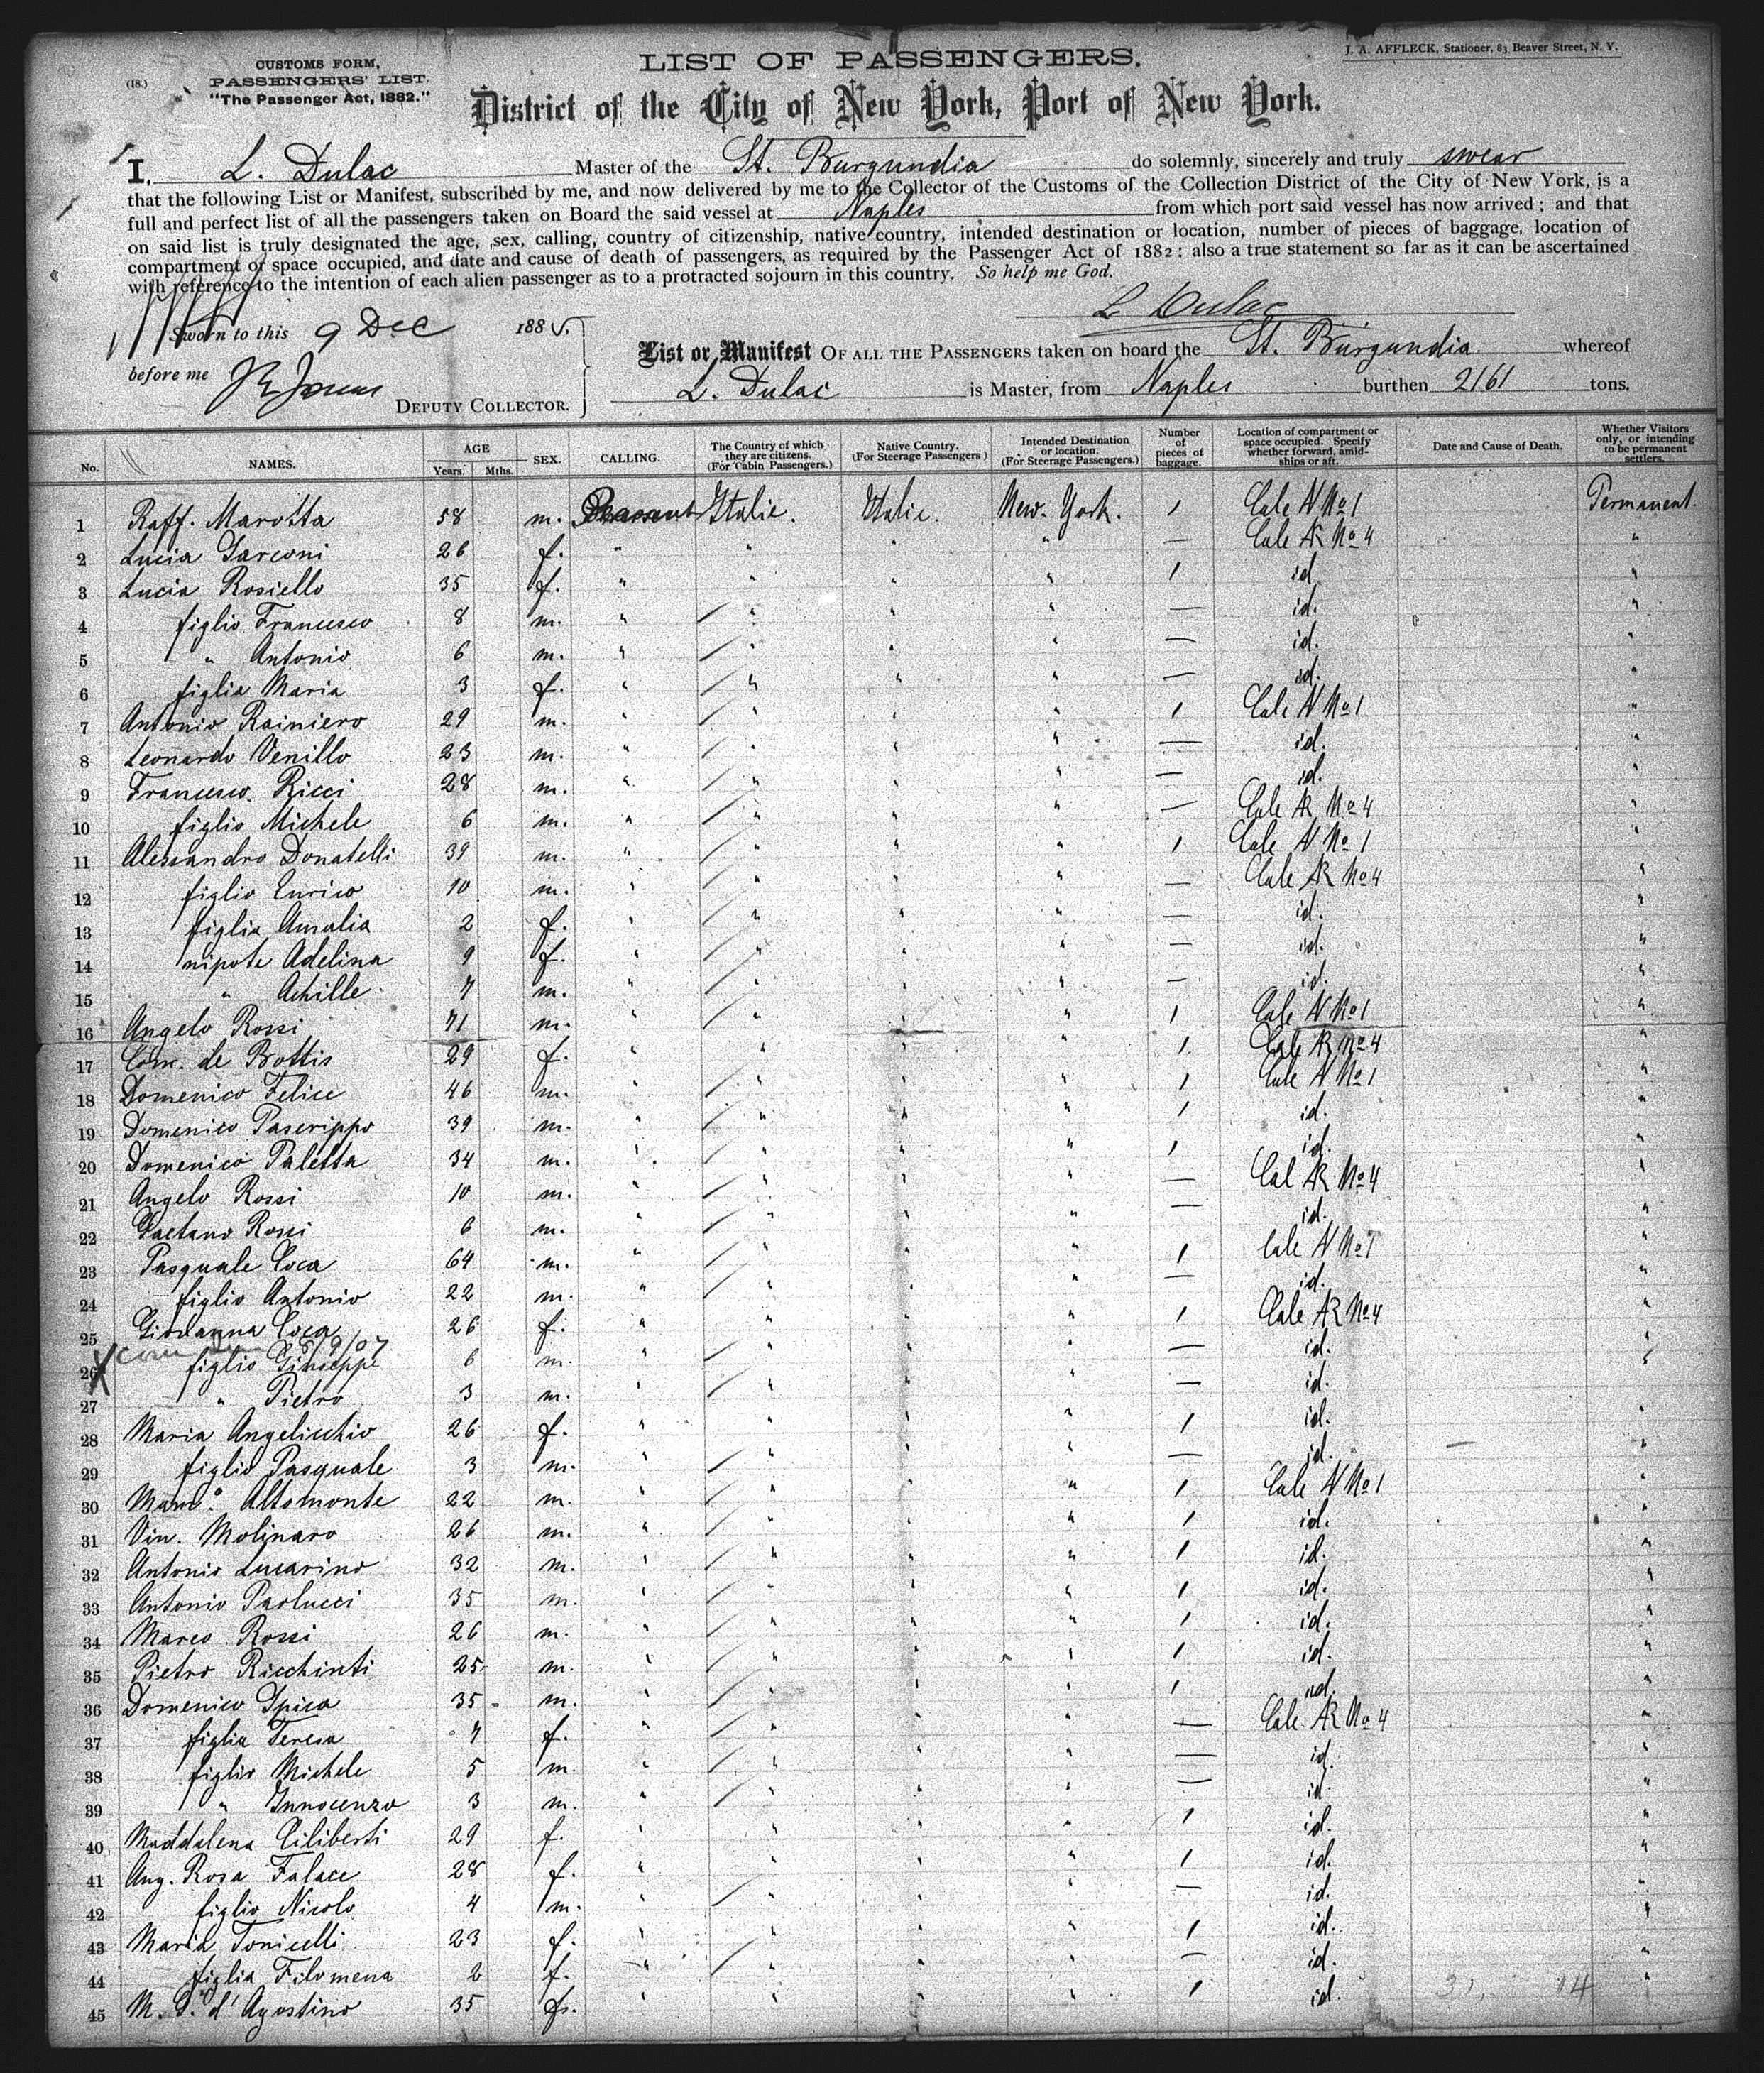 (18.)
CUSTOMS FORM,
PASSENGERS' LIST.
"The Passenger Act, 1882."
LIST OF PASSENGERS.
J. A. AFFLECK, Stationer, 83 Beaver Street, N. Y.
District of the City of New York, Port of New York.
I, L. Dulac Master of the St. Burgundia do solemnly, sincerely and truly swear
that the following List or Manifest, subscribed by me, and now delivered by me to the Collector of the Customs of the Collection District of the City of New York, is a
full and perfect list of all the passengers taken on Board the said vessel at Naples from which port said vessel has now arrived; and that
on said list is truly designated the age, sex, calling, country of citizenship, native country, intended destination or location, number of pieces of baggage, location of
compartment or space occupied, and date and cause of death of passengers, as required by the Passenger Act of 1882: also a true statement so far as it can be ascertained
with reference to the intention of each alien passenger as to a protracted sojourn in this country. So help me God.
L. Dulac
Sworn to this 9 Dec 1885.
before me
DEPUTY COLLECTOR.
List or Manifest OF ALL THE PASSENGERS taken on board the St. Burgundia whereof
L. Dulac is Master, from Naples burthen 2161 tons.
No. NAMES. AGE Years. Mths. SEX. CALLING. The Country of which they are citizens. (For Cabin Passengers.) Native Country. (For Steerage Passengers) Intended Destination or location. (For Steerage Passengers.) Number of pieces of baggage. Location of compartment or space occupied. Specify whether forward, amidships or aft. Date and Cause of Death. Whether Visitors only, or intending to be permanent settlers.
1 Raff. Marotta 58 m. Peasant Italie. Italie. New-York. 1 Cale N No 1 Permanent.
2 Lucia Garconi 26 f. " " " " — Cale AR No 4 "
3 Lucia Rosiello 35 f. " " " " 1 id. "
4 figlio Francesco 8 m. " " " " — id. "
5 " Antonio 6 m. " " " " — id. "
6 figlia Maria 3 f. " " " " — id. "
7 Antonio Rainiero 29 m. " " " " 1 Cale N No 1 "
8 Leonardo Venillo 23 m. " " " " — id. "
9 Francesco Ricci 28 m. " " " " — id. "
10 figlio Michele 6 m. " " " " — Cale AR No 4 "
11 Alessandro Donatelli 39 m. " " " " 1 Cale N No 1 "
12 figlio Enrico 10 m. " " " " — Cale AR No 4 "
13 figlia Amalia 2 f. " " " " — id. "
14 nipote Adelina 9 f. " " " " — id. "
15 " Achille 7 m. " " " " — id. "
16 Angelo Rossi 71 m. " " " " 1 Cale N No 1 "
17 Con. de Bottis 29 f. " " " " 1 Cale AR No 4 "
18 Domenico Felice 46 m. " " " " 1 Cale N No 1 "
19 Domenico Paserippo 39 m. " " " " 1 id. "
20 Domenico Paletta 34 m. " " " " 1 id. "
21 Angelo Rossi 10 m. " " " " — Cal AR No 4 "
22 Gaetano Rossi 6 m. " " " " — id. "
23 Pasquale Coca 64 m. " " " " 1 Cale N No 1 "
24 figlio Antonio 22 m. " " " " — id. "
25 Giovanna Coca 26 f. " " " " 1 Cale AR No 4 "
26 figlio Giuseppe 6 m. " " " " — id. "
27 " Pietro 3 m. " " " " — id.
28 Maria Angelicchio 26 f. " " " " 1 id. "
29 figlio Pasquale 3 m. " " " " — id. "
30 Altomonte 22 m. " " " " 1 Cale N No 1 "
31 Vin. Molinaro 26 m. " " " " 1 id. "
32 Antonio Lucarino 32 m. " " " " 1 id. "
33 Antonio Paolucci 35 m. " " " " 1 id. "
34 Marco Rossi 26 m. " " " " 1 id. "
35 Pietro Ricchinti 25 m. " " " " 1 id. "
36 Domenico Spica 35 m. " " " " 1 id. "
37 figlia Teresa 7 f. " " " " — Cale AR No 4 "
38 figlio Michele 5 m. " " " " — id. "
39 " Innocenzo 3 m. " " " " — id. "
40 Maddalena Ciliberti 29 f. " " " " 1 id. "
41 Ang. Rosa Falace 28 f. " " " " 1 id. "
42 figlio Nicolo 4 m. " " " " — id. "
43 Maria Tonicelli 23 f. " " " " 1 id. "
44 figlia Filomena 2 f. " " " " — id. "
45 M. G. d'Agostino 35 f. " " " " 1 id. "